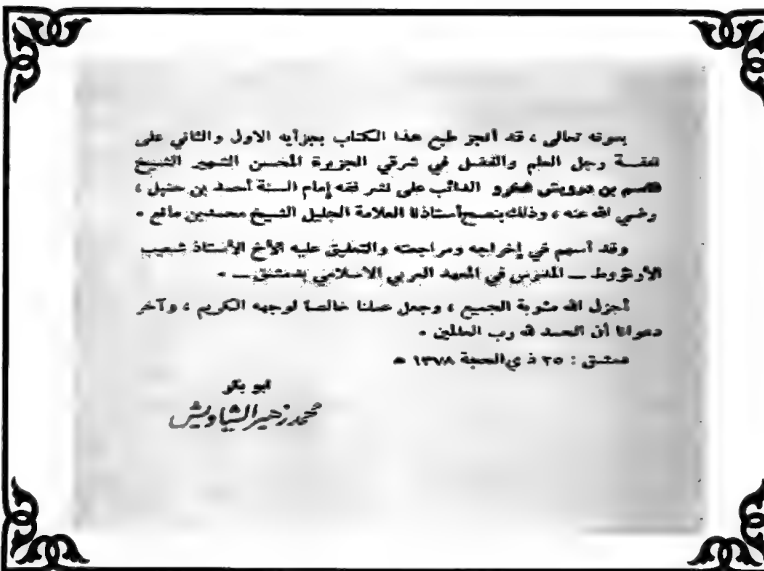 بعونه تعالى ، قد أنجز طبع هذا الكتاب بجزأيه الاول والثاني على
نفقــة رجل العلم والفضل في شرقي الجزيرة المحسن الشهير الشيخ
قاسم بن درويش فخرو الدائب على نشر فقه إمام السنة أحمد بن حنبل ،
رضي الله عنه ، وذلك بنصح أستاذنا العلامة الجليل الشيخ محمد بن مانع .
وقد أسهم في إخراجه ومراجعته والتعليق عليه الأخ الأستاذ شعيب
الأرنؤوط ــ المدرس في المعهد العربي الاسلامي بدمشق ــ .
أجزل الله مثوبة الجميع ، وجعل عملنا خالصاً لوجهه الكريم ، وآخر
دعوانا أن الحمد لله رب العالمين .
دمشق : ٢٥ ذي الحجة ١٣٧٨ هـ
ابو بكر
محمد زهير الشاويش